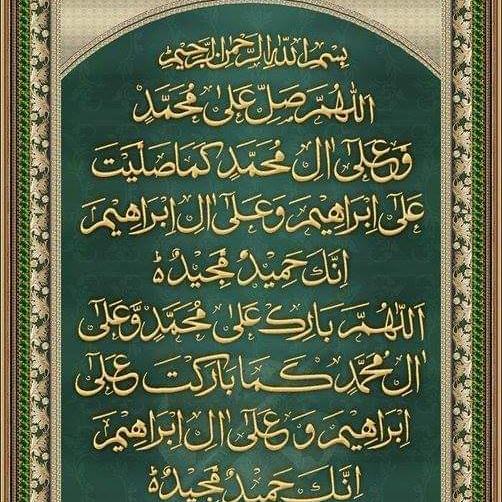 بسم الله الرحمن الرحيم
اَللّٰهُمَّ صَلِّ عَلٰى مُحَمَّدٍ
وَّعَلٰٓى اٰلِ مُحَمَّدٍ كَمَا صَلَّيْتَ
عَلٰٓى اِبْرَاهِيْمَ وَعَلٰٓى اٰلِ اِبْرَاهِيْمَ
اِنَّكَ حَمِيْدٌ مَّجِيْدٌ ؕ
اَللّٰهُمَّ بَارِكْ عَلٰى مُحَمَّدٍ وَّعَلٰٓى
اٰلِ مُحَمَّدٍ كَمَا بَارَكْتَ عَلٰٓى
اِبْرَاهِيْمَ وَعَلٰٓى اٰلِ اِبْرَاهِيْمَ
اِنَّكَ حَمِيْدٌ مَّجِيْدٌ ؕ